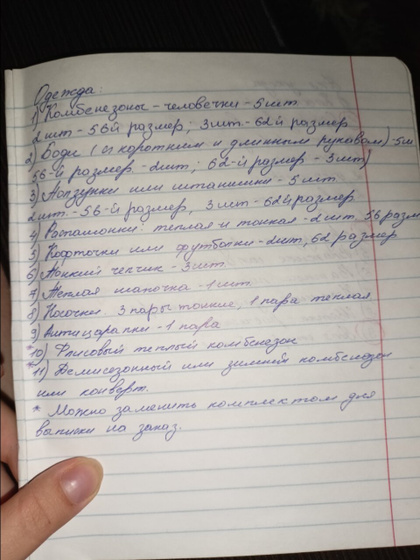 Одежда:
1) Комбенезоны - человечки - 5 шт
2 шт - 56й размер; 3 шт - 62й размер
2) Боди (с коротким и длинным рукавом) - 5 ш
56-й размер - 2 шт; 62-й размер - 3 шт)
3) Ползунки или штанишки - 5 шт
2 шт. - 56-й размер, 3 шт - 62й размер
4) Распашонки: теплая и тонкая - 2 шт. 56 разм
5) Кофточки или футболки - 2 шт, 62 размер
6) Тонкий чепчик - 3 шт
7) Теплая шапочка - 1 шт
8) Носочки: 3 пары тонкие, 1 пара теплая,
9) Антицарапки - 1 пара
*10) Флисовый теплый комбенезон
*11) Демисезонный или зимний комбенезон
или конверт.
* Можно заменить комплектом для
выписки на заказ.